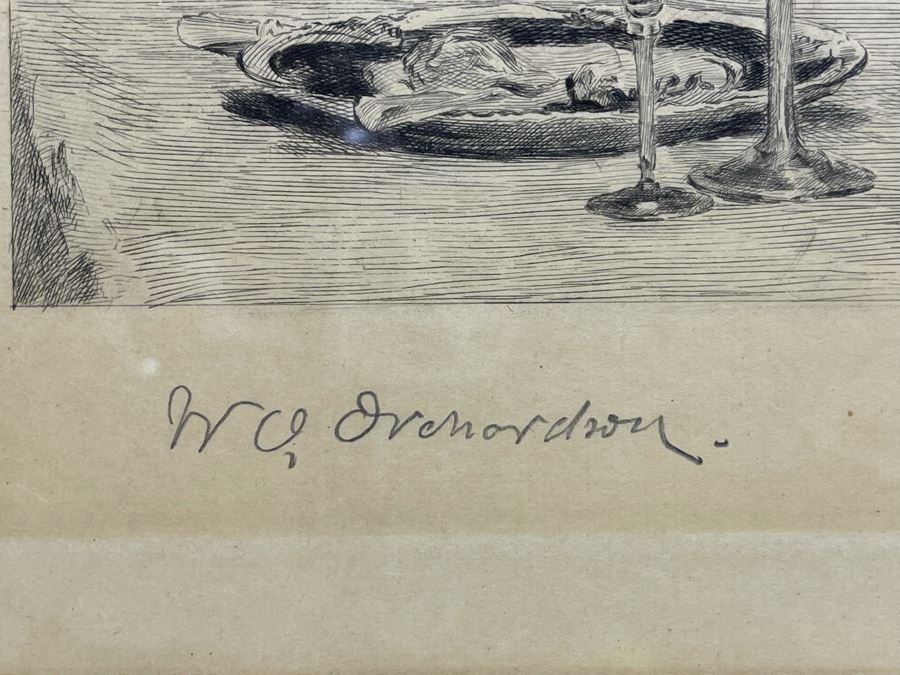 W Q Orchardson.